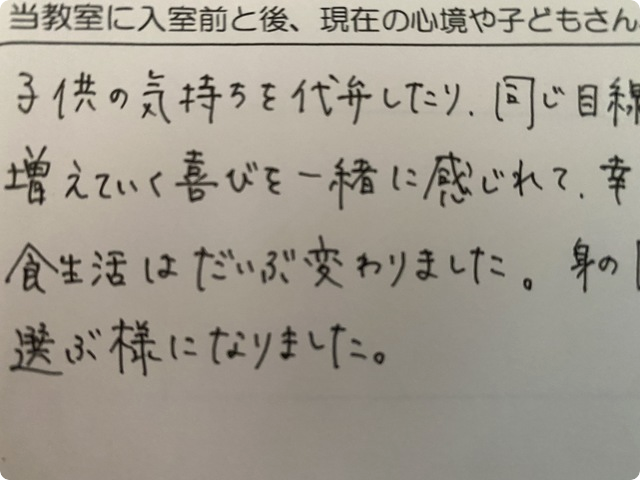 当教室に入室前と後、現在の心境や子どもさん
子供の気持ちを代弁したり、同じ目線
増えていく喜びを一緒に感じれて、幸
食生活はだいぶ変わりました。身の
選ぶ様になりました。